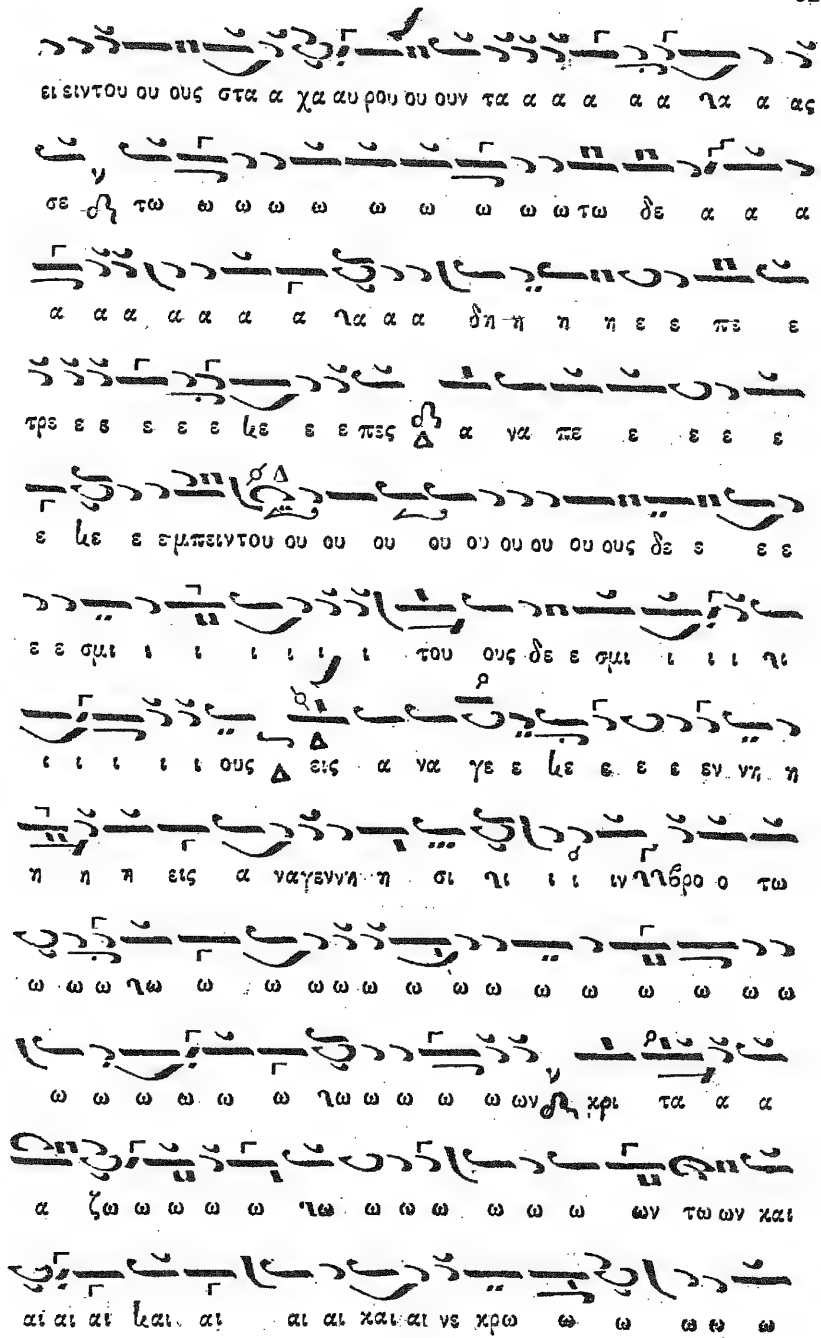 ει ειντου ου ους στα α χα αυ ρου ου ουν τα α α α α α γα α ας
σε τω ω ω ω ω ω ω ω ω ω τω δε α α α
α α α α α α α γα α α δη η η η ε ε πε ε
τρε ε ε ε ε ε κε ε ε πες Δ α να πε ε ε ε ε
ε κε ε εμπειντου ου ου ου ου ου ου ου ου ους δε ε ε ε
ε ε σμι ι ι ι ι ι ι του ους δε ε σμι ι ι ι γι
ι ι ι ι ι ους Δ εις α να γε ε κε ε ε ε εν νη η
η η η εις α ναγεννη η σι γι ι ι ιν βρο ο τω
ω ω ω γω ω ω ω ω ω ω ω ω ω ω ω ω ω ω
ω ω ω ω ω ω γω ω ω ω ω ω ων κρι τα α α
α ζω ω ω ω ω γω ω ω ω ω ω ω ων τω ων και
αι αι αι και αι αι αι και αι νε κρω ω ω ω ω ω